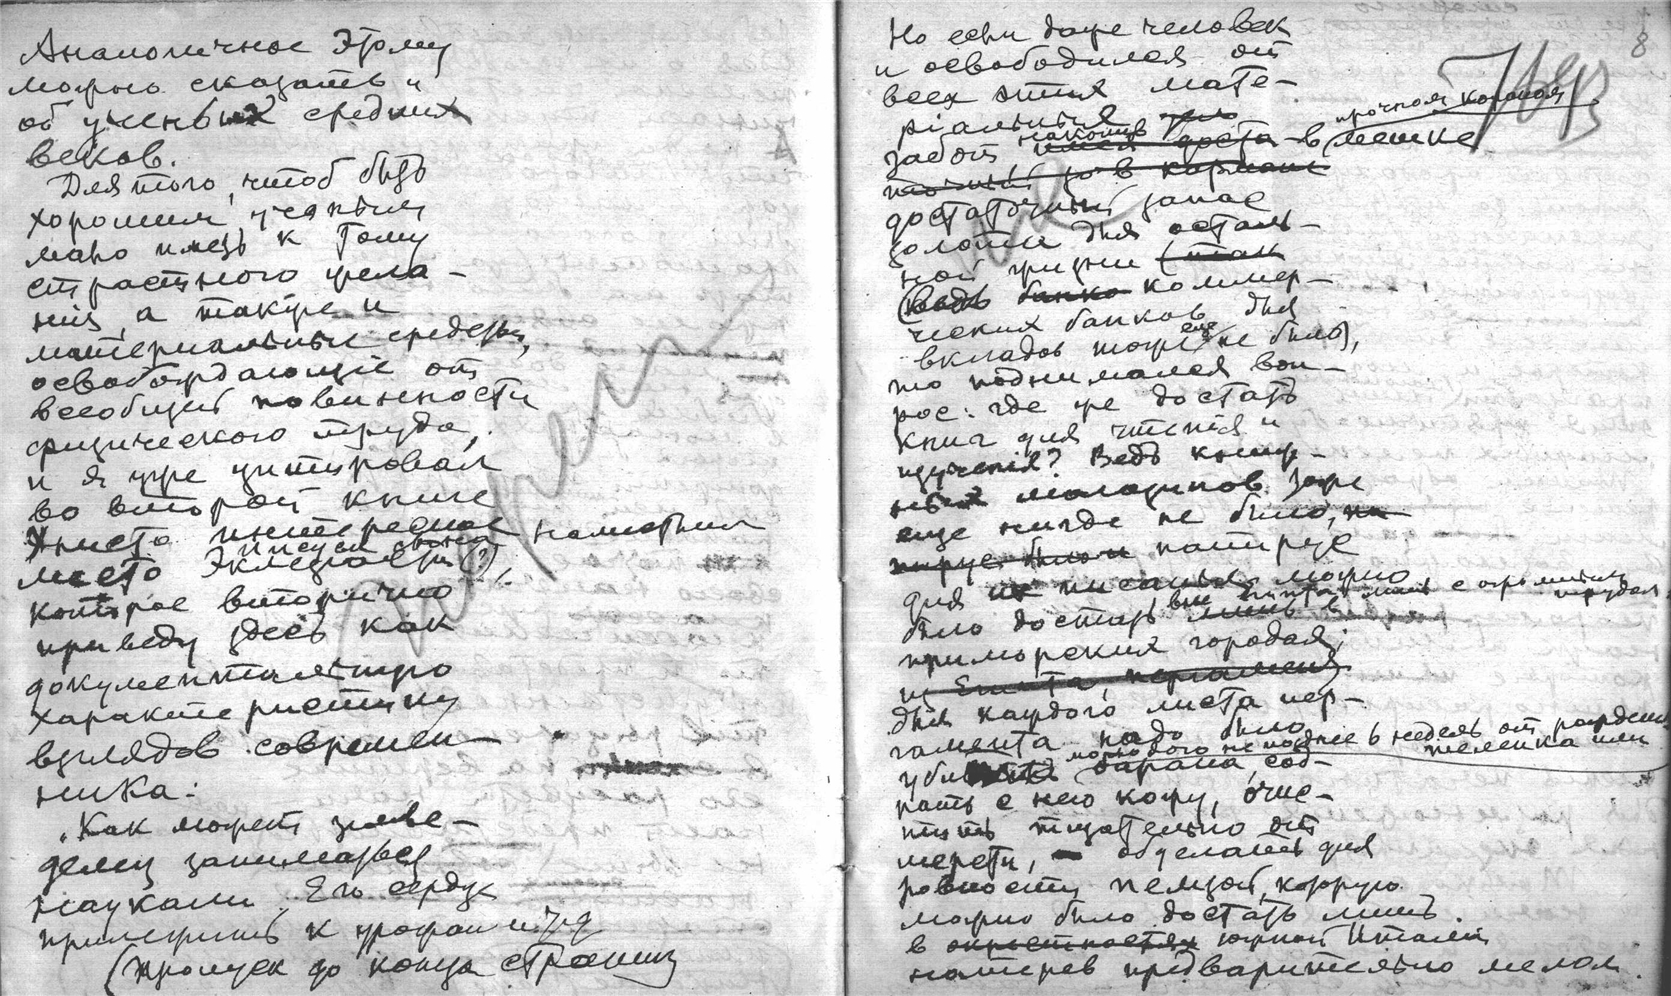 Аналогичное этому
можно сказать и
об ученых средних
веков.
Для того, чтоб быть
хорошим ученым
мало иметь к тому
страстного жела-
ния, а также и
материальные средства,
освобождающие от
всеобщей повинности
физического труда,
и я уже цитировал
во второй книге
Христа интересное
место Экклезиаста (?),
которое вторично
приведу здесь как
документальную
характеристику
взглядов современ-
ника:
„Как может земле-
делец заниматься
науками. Его сердце
прилежит к
(Пропуск до конца страницы
8
Но если даже человек
и освободился от
всех этих мате-
ріальных
забот, накопив в мешке
прочном кожаном
достаточный запас
золота для осталь-
ной жизни
(ведь коммер-
ческих банков для
вкладов тоже еще не было),
то поднимался воп-
рос: где же достать
книг для чтенія и
изученія? Ведь книж-
ных магазинов тоже
еще нигде не было,
папирус
для писанья можно
было достать лишь с огромным трудом
приморских городах;
для каждого листа пер-
гамента надо было
убить молодого не позднее 6 недель от рождения
барана, теленка или сод-
рать с него кожу, очис-
тить тщательно от
шерсти, обделать для
ровности пемзой, которую
можно было достать лишь
в южной Италии
натерев предварительно мелом.